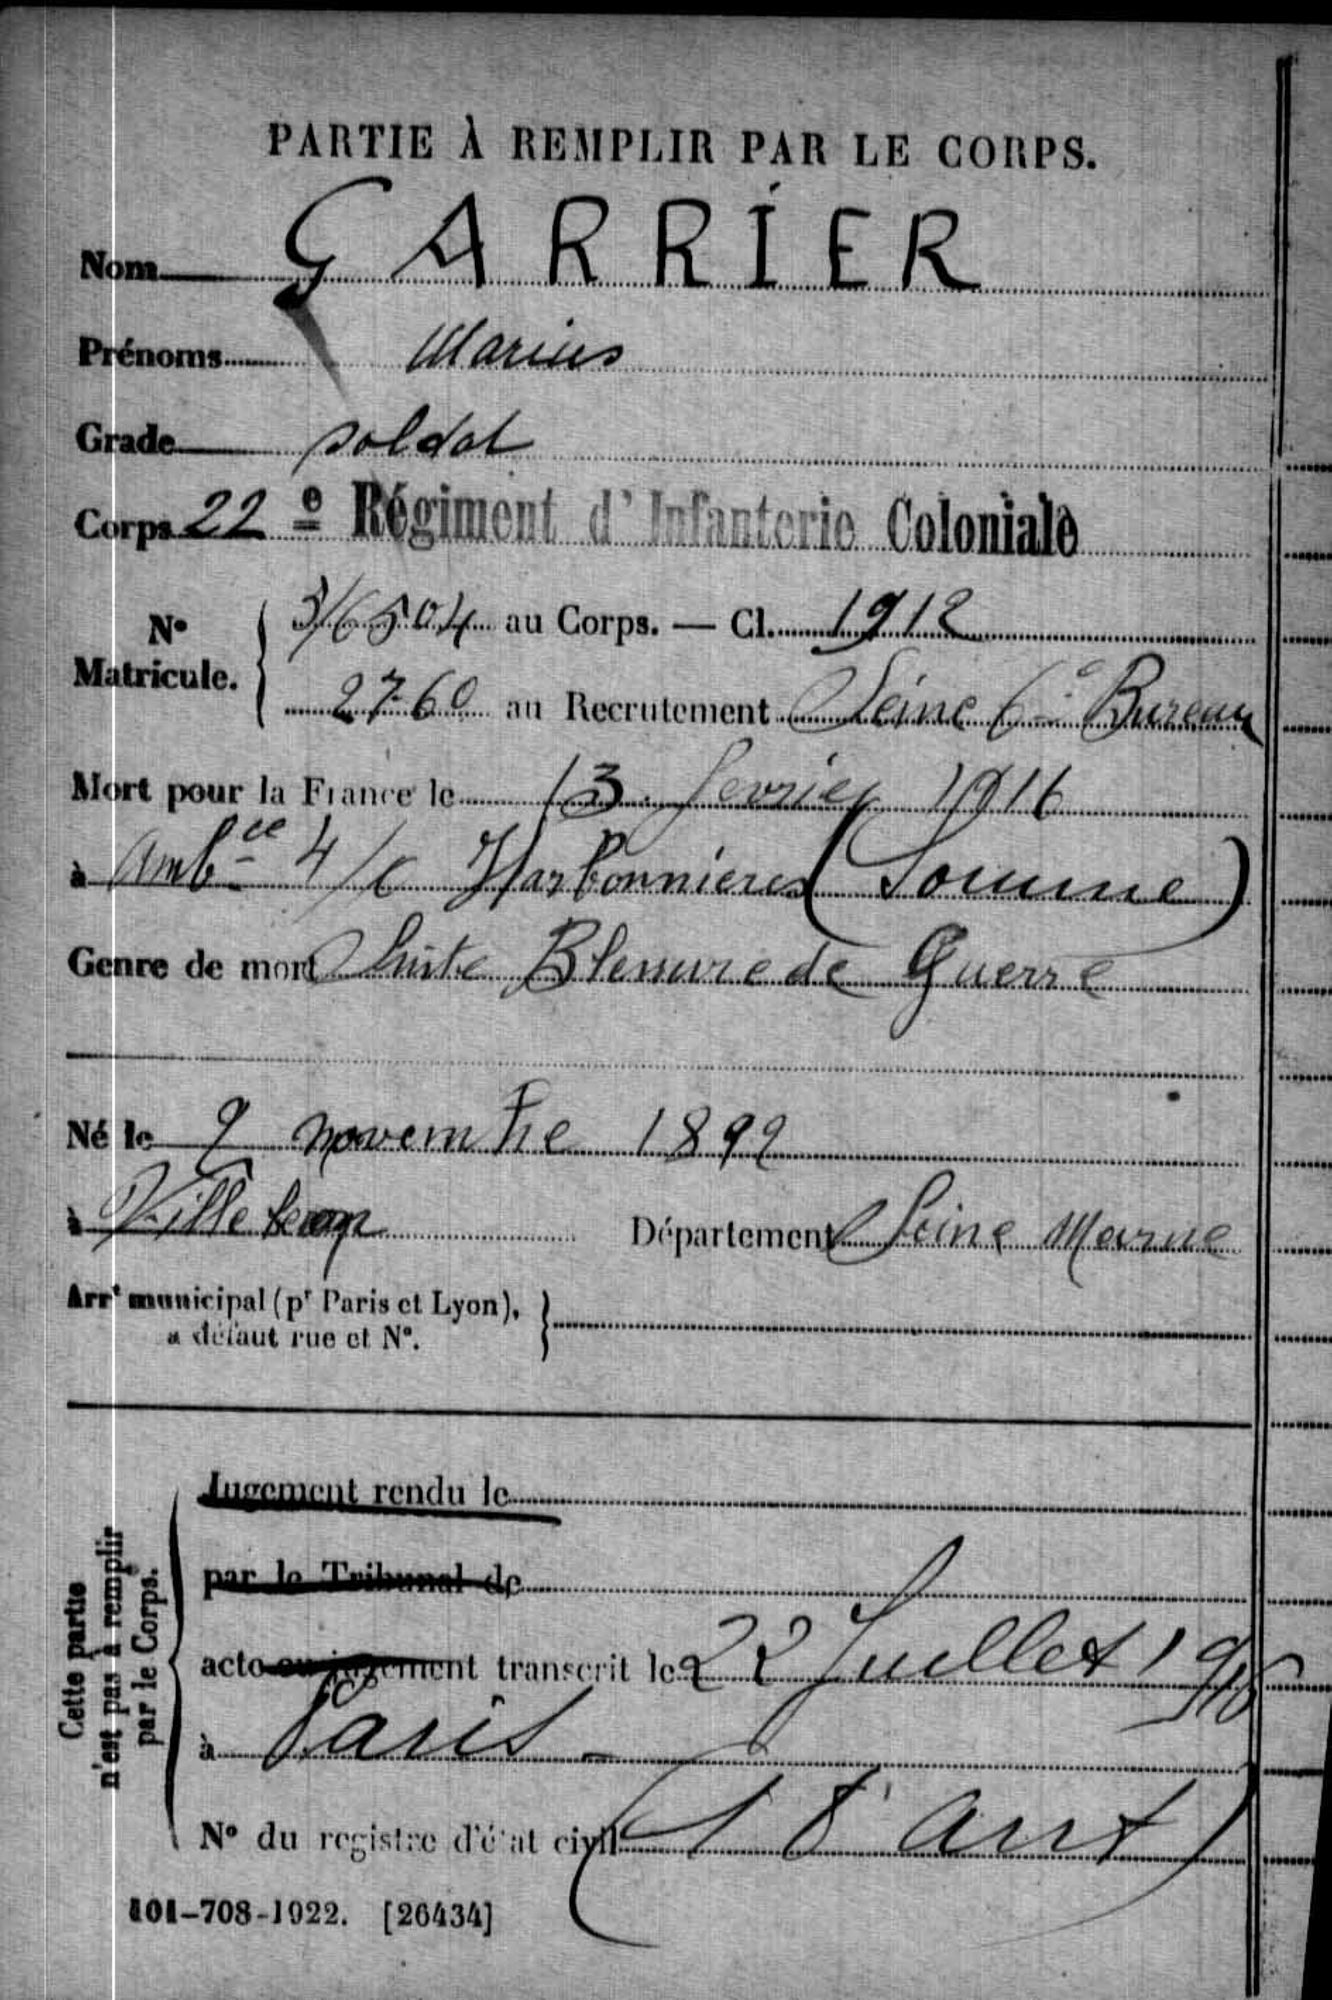 PARTIE À REMPLIR PAR LE CORPS.
Nom GARRIER
Prénoms Marius
Grade soldat
Corps 22 e Régiment d'Infanterie Coloniale
N° Matricule. 3/6504 au Corps. — Cl. 1912
2760 au Recrutement Seine 6e Bureau
Mort pour la France le 13 fevrier 1916
à Ambce 4/C Harbonnieres (Somme)
Genre de mort Suite Blessure de Guerre
Né le 9 novembre 1892
à Département Seine Marne
Arrt municipal (pr Paris et Lyon),
à défaut rue et N°.
Jugement rendu le
par le Tribunal de
acte ou jugement transcrit le 22 Juillet
à Paris
N° du registre d'état civil (18e arrt)
Cette partie
n'est pas à remplir
par le Corps.
101-708-1922. [26434]